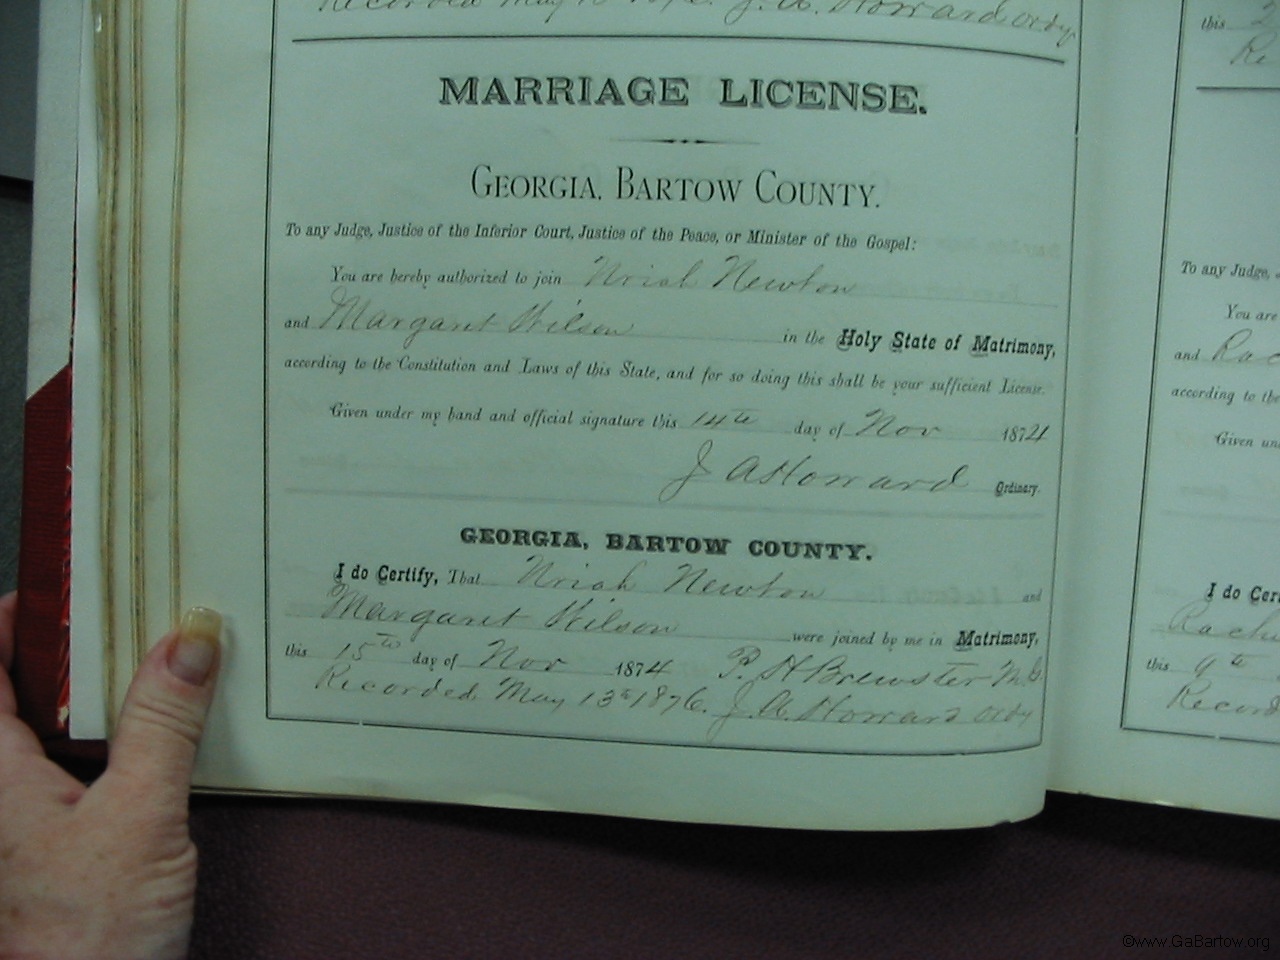 Recorded May J. A. Howard ordy
MARRIAGE LICENSE.
GEORGIA, BARTOW COUNTY.
To any Judge, Justice of the Inferior Court, Justice of the Peace, or Minister of the Gospel:
You are hereby authorized to join Uriah Newton
and Margaret Wilson in the Holy State of Matrimony,
according to the Constitution and Laws of this State, and for so doing this shall be your sufficient License.
Given under my hand and official signature this 14th day of Nov 1874
J A Howard Ordinary.
GEORGIA, BARTOW COUNTY.
I do Certify, That Uriah Newton and
Margaret Wilson were joined by me in Matrimony,
this 15th day of Nov 1874 P. H Brewster M.G.
Recorded May 13th 1876. J. A. Howard ordy
this 2
Re
To any Judge,
You are
and Rac
according to the
Given un
I do Cer
Rache
this 9th
Record
©www.GaBartow.org